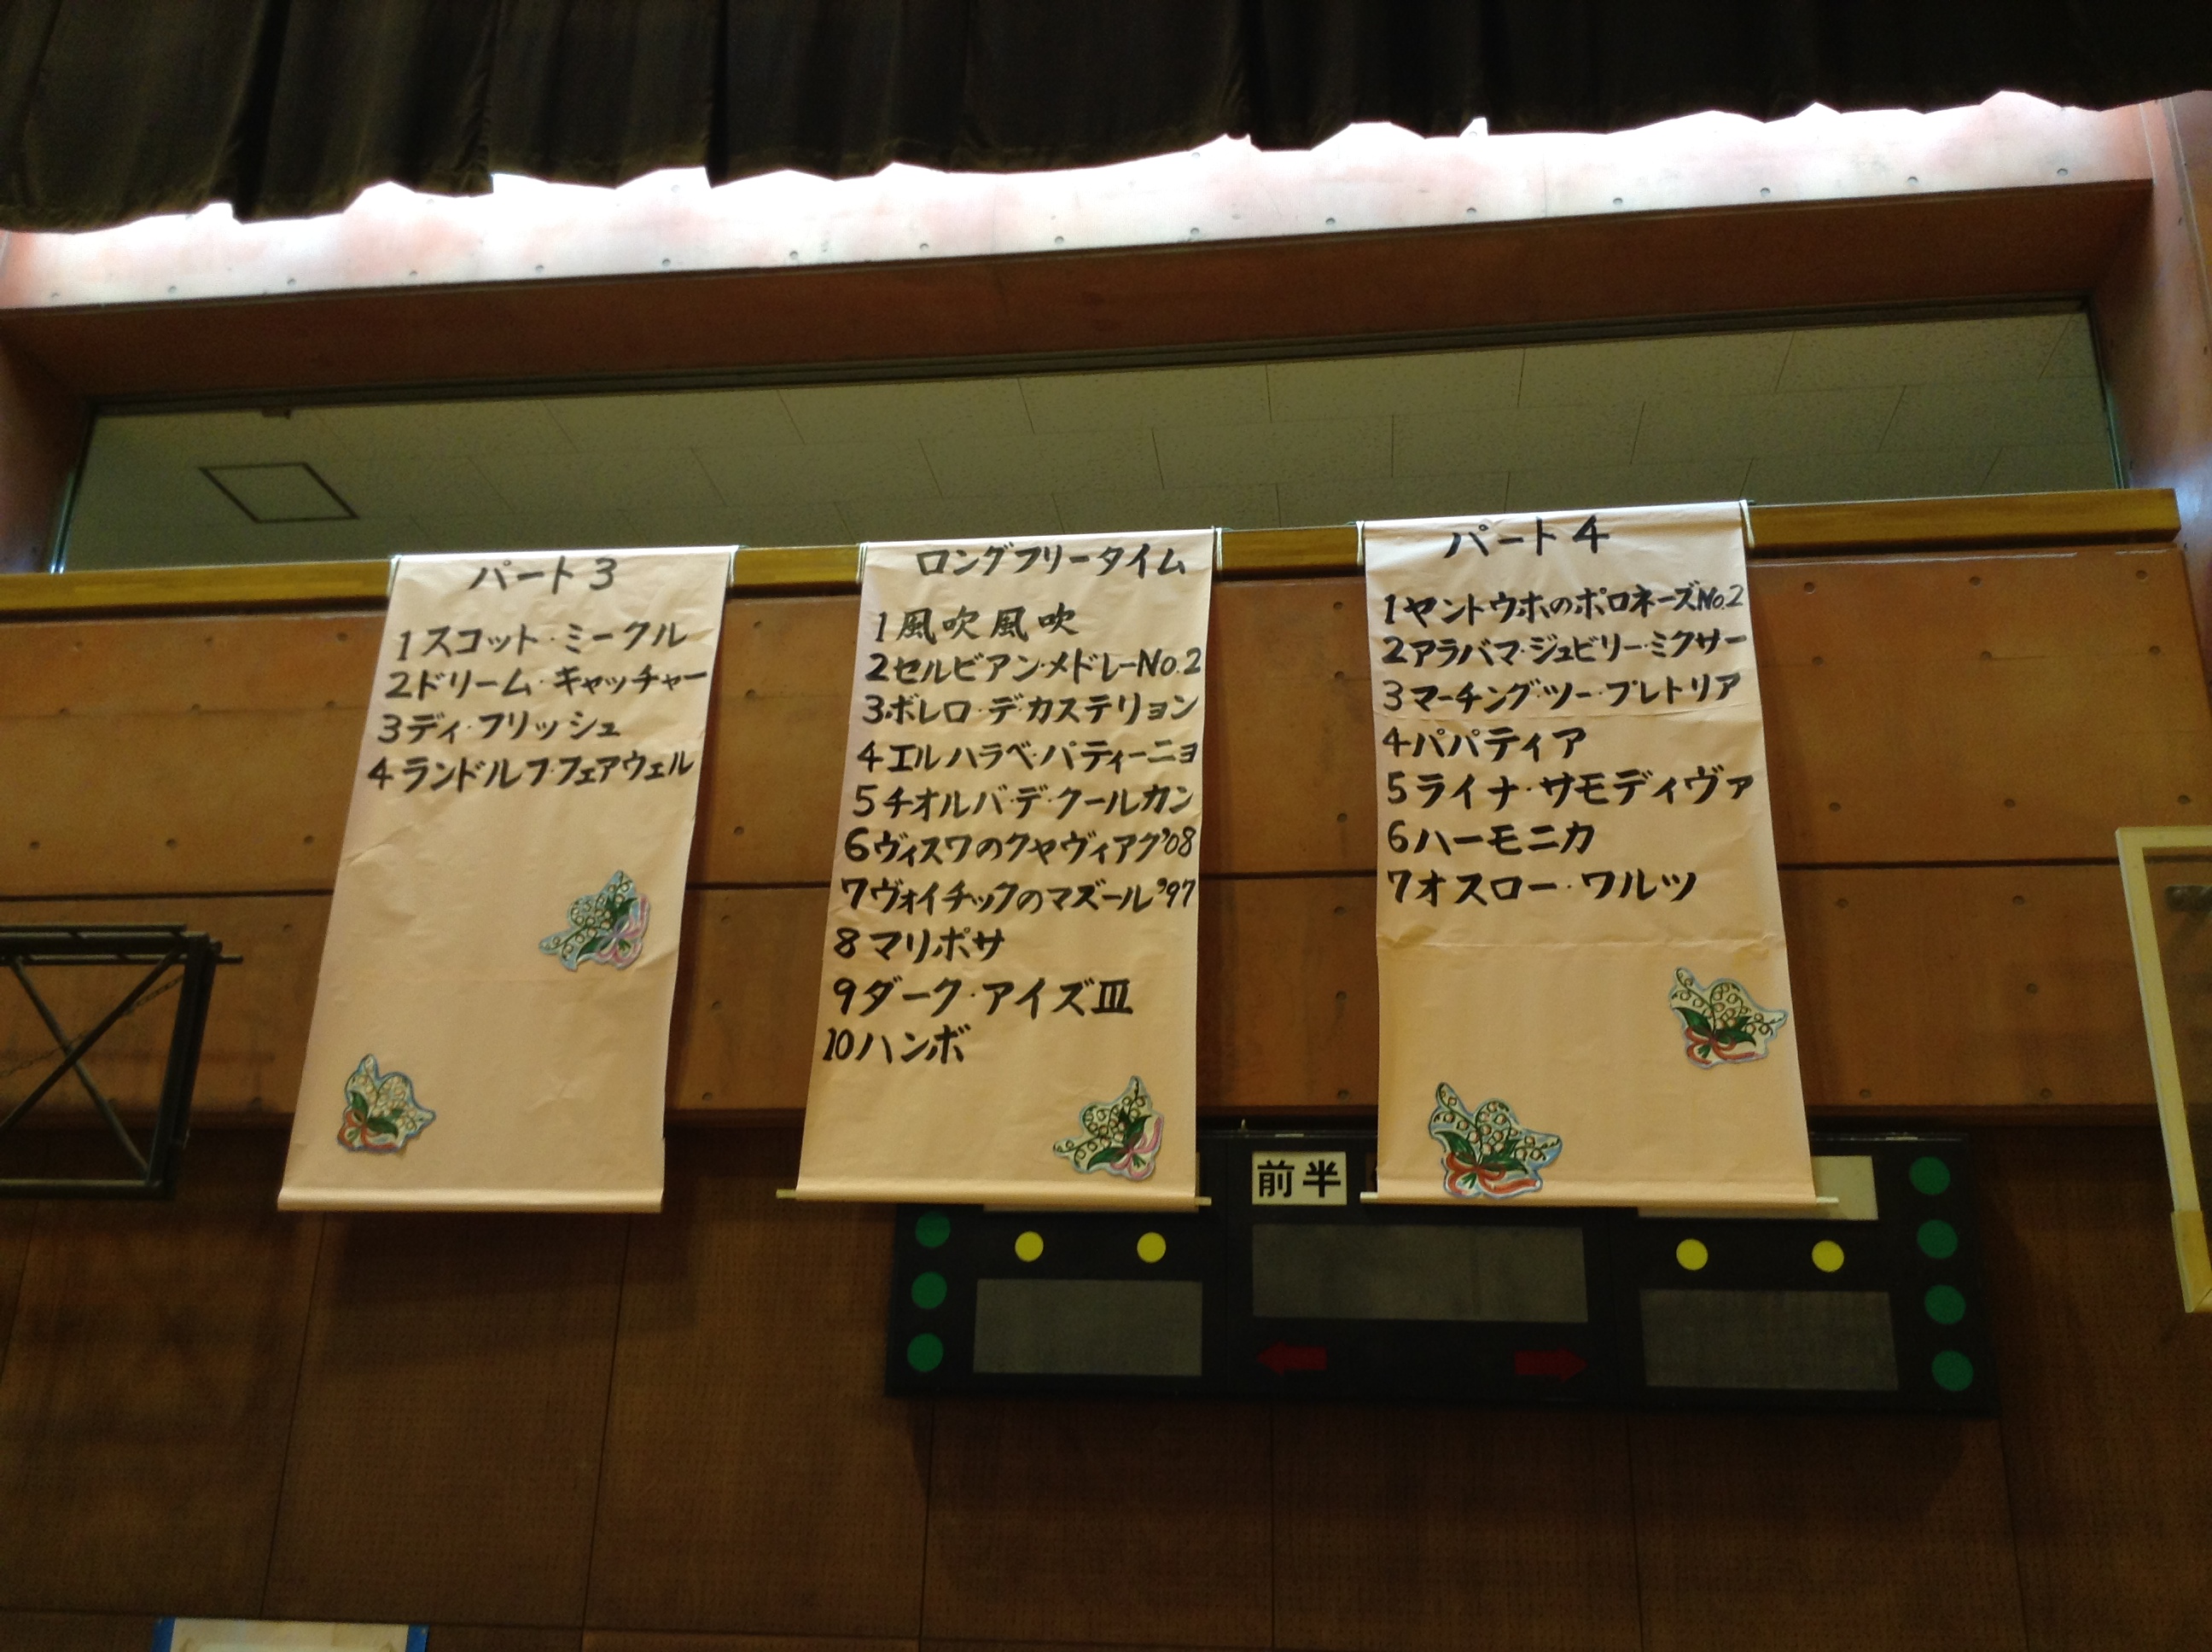 パート3
1スコット・ミークル
2ドリーム・キャッチャー
3ディ・フリッシュ
4ランドルフ・フェアウェル
ロングフリータイム
1風吹風吹
2セルビアン・メドレーNo.2
3ボレロ・デ・カステリョン
4エルハラベ・パティーニョ
5チオルバ・デ・クールカン
6ヴィスワのクヤヴィアク'08
7ヴォイチックのマズール'97
8マリポサ
9ダーク・アイズⅢ
10ハンボ
パート4
1ヤントウホのポロネーズNo.2
2アラバマ・ジュビリー・ミクサー
3マーチング・ツー・プレトリア
4パパティア
5ライナ・サモディヴァ
6ハーモニカ
7オスロー・ワルツ
前半